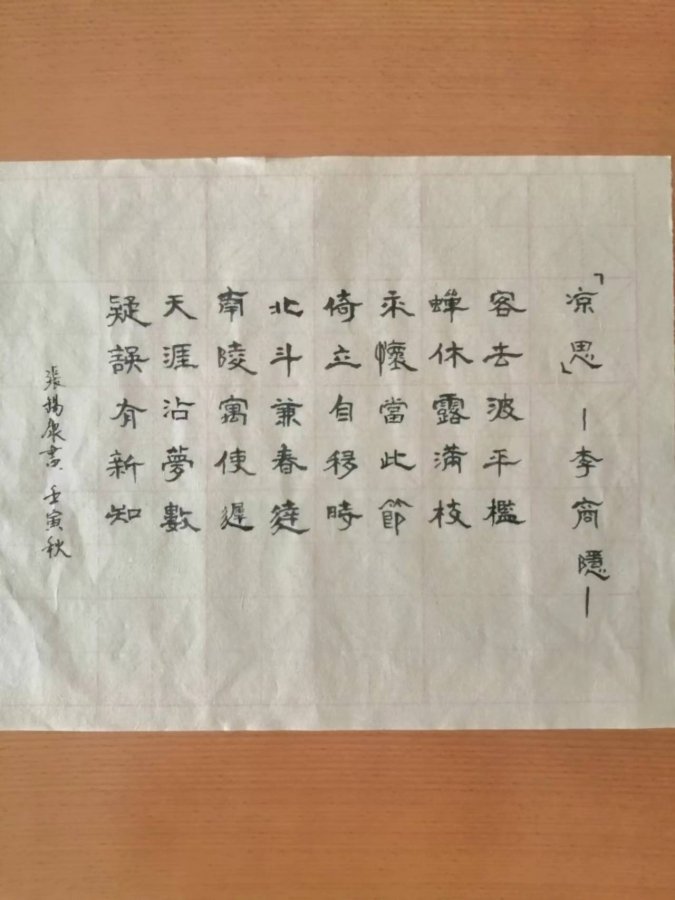 「凉思」—李商隱—
客去波平檻
蟬休露滿枝
永懷當此節
倚立自移時
北斗兼春遠
南陵寓使遲
天涯沾夢數
疑誤有新知
張揚康書 壬寅秋